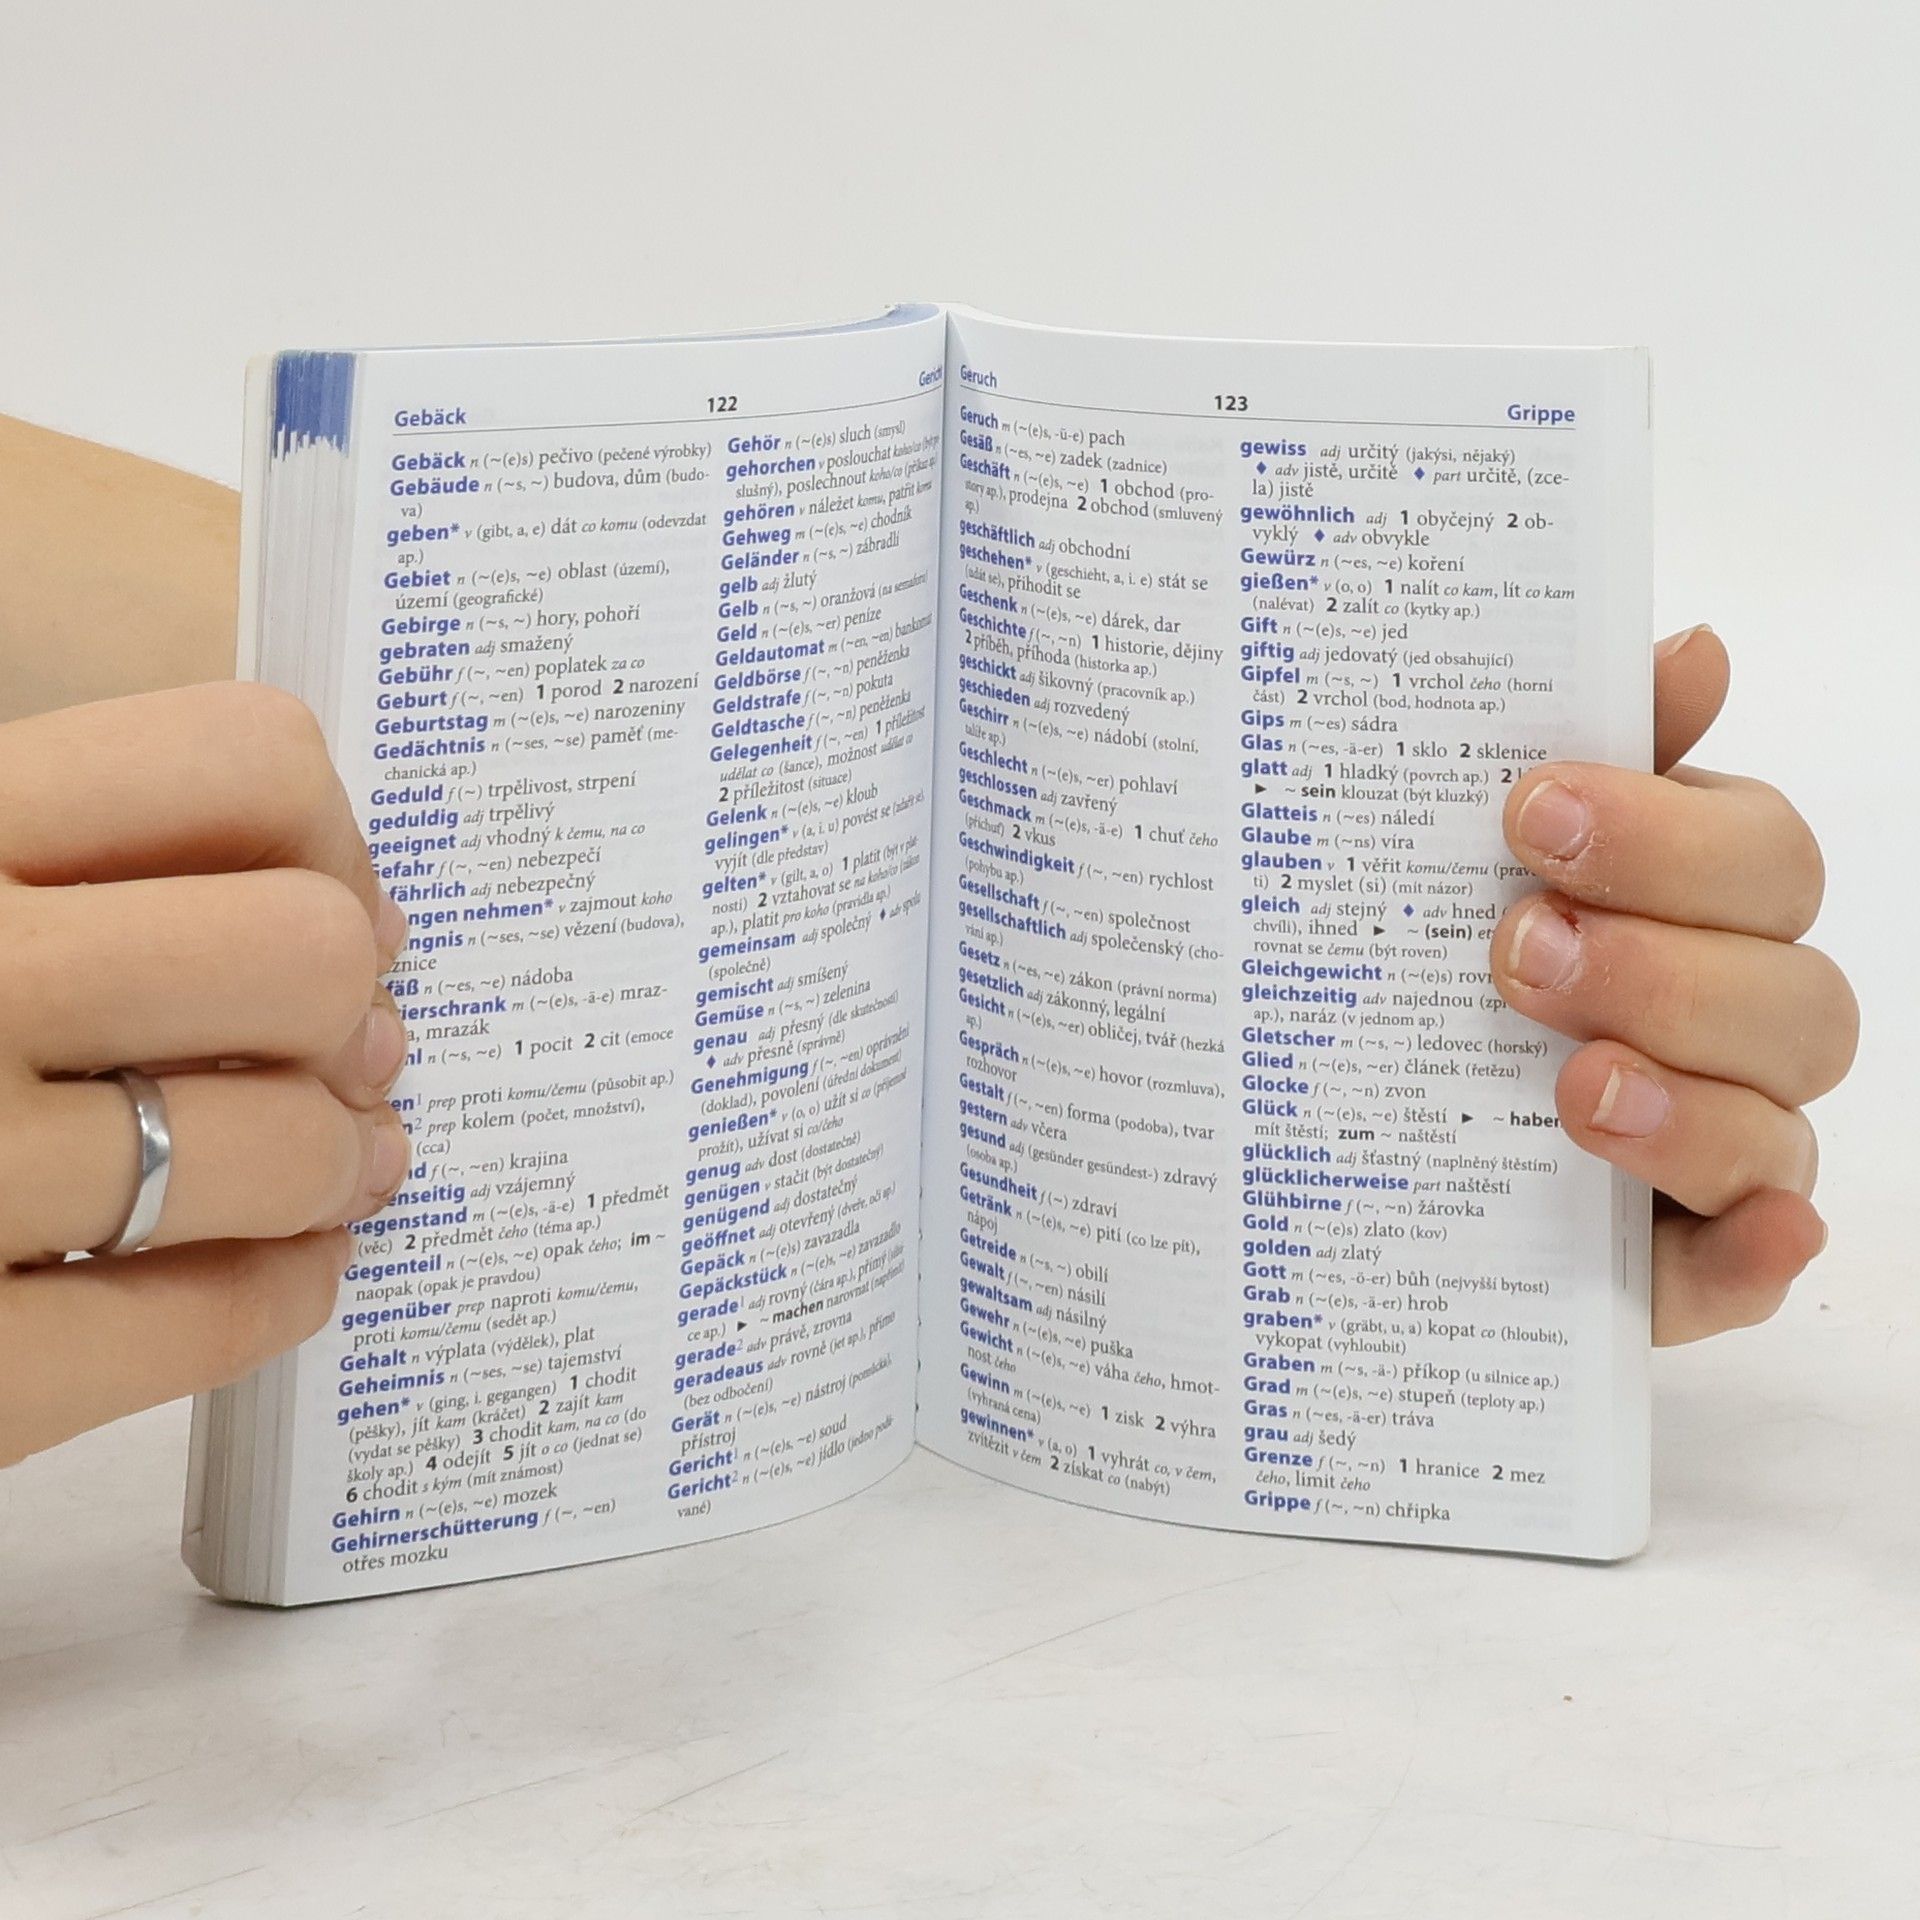 Gebäck
122
Gebäck n (~(e)s) pečivo (pečené výrobky)
Gebäude n (~s, ~) budova, dům (budo-
va)
geben* v (gibt, a, e) dát co komu (odevzdat
ap.)
Gebiet n (~(e)s, ~e) oblast (území),
území (geografické)
Gebirge n (~s, ~) hory, pohoří
gebraten adj smažený
Gebühr f (~, ~en) poplatek za co
Geburt f (~, ~en) 1 porod 2 narození
Geburtstag m (~(e)s, ~e) narozeniny
Gedächtnis n (~ses, ~se) paměť (me-
chanická ap.)
Geduld f (~) trpělivost, strpení
geduldig adj trpělivý
geeignet adj vhodný k čemu, na co
efahr f (~, ~en) nebezpečí
fährlich adj nebezpečný
ngen nehmen* v zajmout koho
ngnis n (~ses, ~se) vězení (budova),
znice
fäß n (~es, ~e) nádoba
rierschrank m (~(e)s, -ä-e) mraz-
a, mrazák
hl n (~s, ~e) 1 pocit 2 cit (emoce
en¹ prep proti komu/čemu (působit ap.)
n² prep kolem (počet, množství),
(cca)
nd f (~, ~en) krajina
enseitig adj vzájemný
Gegenstand m (~(e)s, -ä-e) 1 předmět
(věc) 2 předmět čeho (téma ap.)
Gegenteil n (~(e)s, ~e) opak čeho; im ~
naopak (opak je pravdou)
gegenüber prep naproti komu/čemu,
proti komu/čemu (sedět ap.)
Gehalt n výplata (výdělek), plat
Geheimnis n (~ses, ~se) tajemství
gehen* v (ging, i. gegangen) 1 chodit
(pěšky), jít kam (kráčet) 2 zajít kam
(vydat se pěšky) 3 chodit kam, na co (do
školy ap.) 4 odejít 5 jít o co (jednat se)
6 chodit s kým (mít známost)
Gehirn n (~(e)s, ~e) mozek
Gehirnerschütterung f (~, ~en)
otřes mozku
Gehör n (~(e)s) sluch (smysl)
gehorchen v poslouchat koho/co
slušný), poslechnout koho/co
gehören v náležet komu, patřit komu
Gehweg m (~(e)s, ~e) chodník
Geländer n (~s, ~) zábradlí
gelb adj žlutý
Gelb n (~s, ~) oranžová (na semaforu)
Geld n (~(e)s, ~er) peníze
Geldautomat m (~en, ~en) bankomat
Geldbörse f (~, ~n) peněženka
Geldstrafe f (~, ~n) pokuta
Geldtasche f (~, ~n) peněženka
Gelegenheit f (~, ~en) 1 příležitost
udělat co (šance), možnost udělat co
2 příležitost (situace)
Gelenk n (~(e)s, ~e) kloub
gelingen* v (a, i. u) povést se (zdařit se),
vyjít (dle představ)
gelten* v (gilt, a, o) 1 platit (být v plat-
nosti) 2 vztahovat se na koho/co (zákon
ap.), platit pro koho (pravidla ap.)
gemeinsam adj společný ♦ adv spolu
(společně)
gemischt adj smíšený
Gemüse n (~s, ~) zelenina
genau adj přesný (dle skutečnosti)
♦ adv přesně (správně)
Genehmigung f (~, ~en) oprávnění
(doklad), povolení (úřední dokument)
genießen* v (o, o) užít si co (příjemně
prožít), užívat si co/čeho
genug adv dost (dostatečně)
genügen v stačit (být dostatečný)
genügend adj dostatečný
geöffnet adj otevřený (dveře, oči ap.)
Gepäck n (~(e)s) zavazadla
Gepäckstück n (~(e)s, ~e) zavazadlo
gerade¹ adj rovný (čára ap.), přímý
ce ap.) ► ~ machen narovnat (napřímit)
gerade² adv právě, zrovna
geradeaus adv rovně (jet ap.), přímo
(bez odbočení)
Gerät n (~(e)s, ~e) nástroj (pomůcka),
přístroj
Gericht¹ n (~(e)s, ~e) soud
Gericht² n (~(e)s, ~e) jídlo (jedno podá-
vané)
Geruch
123
Grippe
Geruch m (~(e)s, -ü-e) pach
Gesäß n (~es, ~e) zadek (zadnice)
Geschäft n (~(e)s, ~e) 1 obchod (pro-
story ap.), prodejna 2 obchod (smluvený
ap.)
geschäftlich adj obchodní
geschehen* v (geschieht, a, i. e) stát se
(udát se), přihodit se
Geschenk n (~(e)s, ~e) dárek, dar
Geschichte f (~, ~n) 1 historie, dějiny
2 příběh, příhoda (historka ap.)
geschickt adj šikovný (pracovník ap.)
geschieden adj rozvedený
Geschirr n (~(e)s, ~e) nádobí (stolní,
talíře ap.)
Geschlecht n (~(e)s, ~er) pohlaví
geschlossen adj zavřený
Geschmack m (~(e)s, -ä-e) 1 chuť čeho
(příchuť) 2 vkus
Geschwindigkeit f (~, ~en) rychlost
(pohybu ap.)
Gesellschaft f (~, ~en) společnost
gesellschaftlich adj společenský (cho-
vání ap.)
Gesetz n (~es, ~e) zákon (právní norma)
gesetzlich adj zákonný, legální
Gesicht n (~(e)s, ~er) obličej, tvář (hezká
ap.)
Gespräch n (~(e)s, ~e) hovor (rozmluva),
rozhovor
Gestalt f (~, ~en) forma (podoba), tvar
gestern adv včera
gesund adj (gesünder gesündest-) zdravý
(osoba ap.)
Gesundheit f (~) zdraví
Getränk n (~(e)s, ~e) pití (co lze pít),
nápoj
Getreide n (~s, ~) obilí
Gewalt f (~, ~en) násilí
gewaltsam adj násilný
Gewehr n (~(e)s, ~e) puška
Gewicht n (~(e)s, ~e) váha čeho, hmot-
nost čeho
Gewinn m (~(e)s, ~e) 1 zisk 2 výhra
(vyhraná cena)
gewinnen* v (a, o) 1 vyhrát co, v čem,
zvítězit v čem 2 získat co (nabýt)
gewiss adj určitý (jakýsi, nějaký)
♦ adv jistě, určitě ♦ part určitě, (zce-
la) jistě
gewöhnlich adj 1 obyčejný 2 ob-
vyklý ♦ adv obvykle
Gewürz n (~es, ~e) koření
gießen* v (o, o) 1 nalít co kam, lít co kam
(nalévat) 2 zalít co (kytky ap.)
Gift n (~(e)s, ~e) jed
giftig adj jedovatý (jed obsahující)
Gipfel m (~s, ~) 1 vrchol čeho (horní
část) 2 vrchol (bod, hodnota ap.)
Gips m (~es) sádra
Glas n (~es, -ä-er) 1 sklo 2 sklenice
glatt adj 1 hladký (povrch ap.) 2
► ~ sein klouzat (být kluzký)
Glatteis n (~es) náledí
Glaube m (~ns) víra
glauben v 1 věřit komu/čemu (prav
ti) 2 myslet (si) (mít názor)
gleich adj stejný ♦ adv hned
chvíli), ihned ► ~ (sein) et
rovnat se čemu (být roven)
Gleichgewicht n (~(e)s) rov
gleichzeitig adv najednou (zp
ap.), naráz (v jednom ap.)
Gletscher m (~s, ~) ledovec (horský)
Glied n (~(e)s, ~er) článek (řetězu)
Glocke f (~, ~n) zvon
Glück n (~(e)s, ~e) štěstí ► ~ haben
mít štěstí; zum ~ naštěstí
glücklich adj šťastný (naplněný štěstím)
glücklicherweise part naštěstí
Glühbirne f (~, ~n) žárovka
Gold n (~(e)s) zlato (kov)
golden adj zlatý
Gott m (~es, -ö-er) bůh (nejvyšší bytost)
Grab n (~(e)s, -ä-er) hrob
graben* v (gräbt, u, a) kopat co (hloubit),
vykopat (vyhloubit)
Graben m (~s, -ä-) příkop (u silnice ap.)
Grad m (~(e)s, ~e) stupeň (teploty ap.)
Gras n (~es, -ä-er) tráva
grau adj šedý
Grenze f (~, ~n) 1 hranice 2 mez
čeho, limit čeho
Grippe f (~, ~n) chřipka